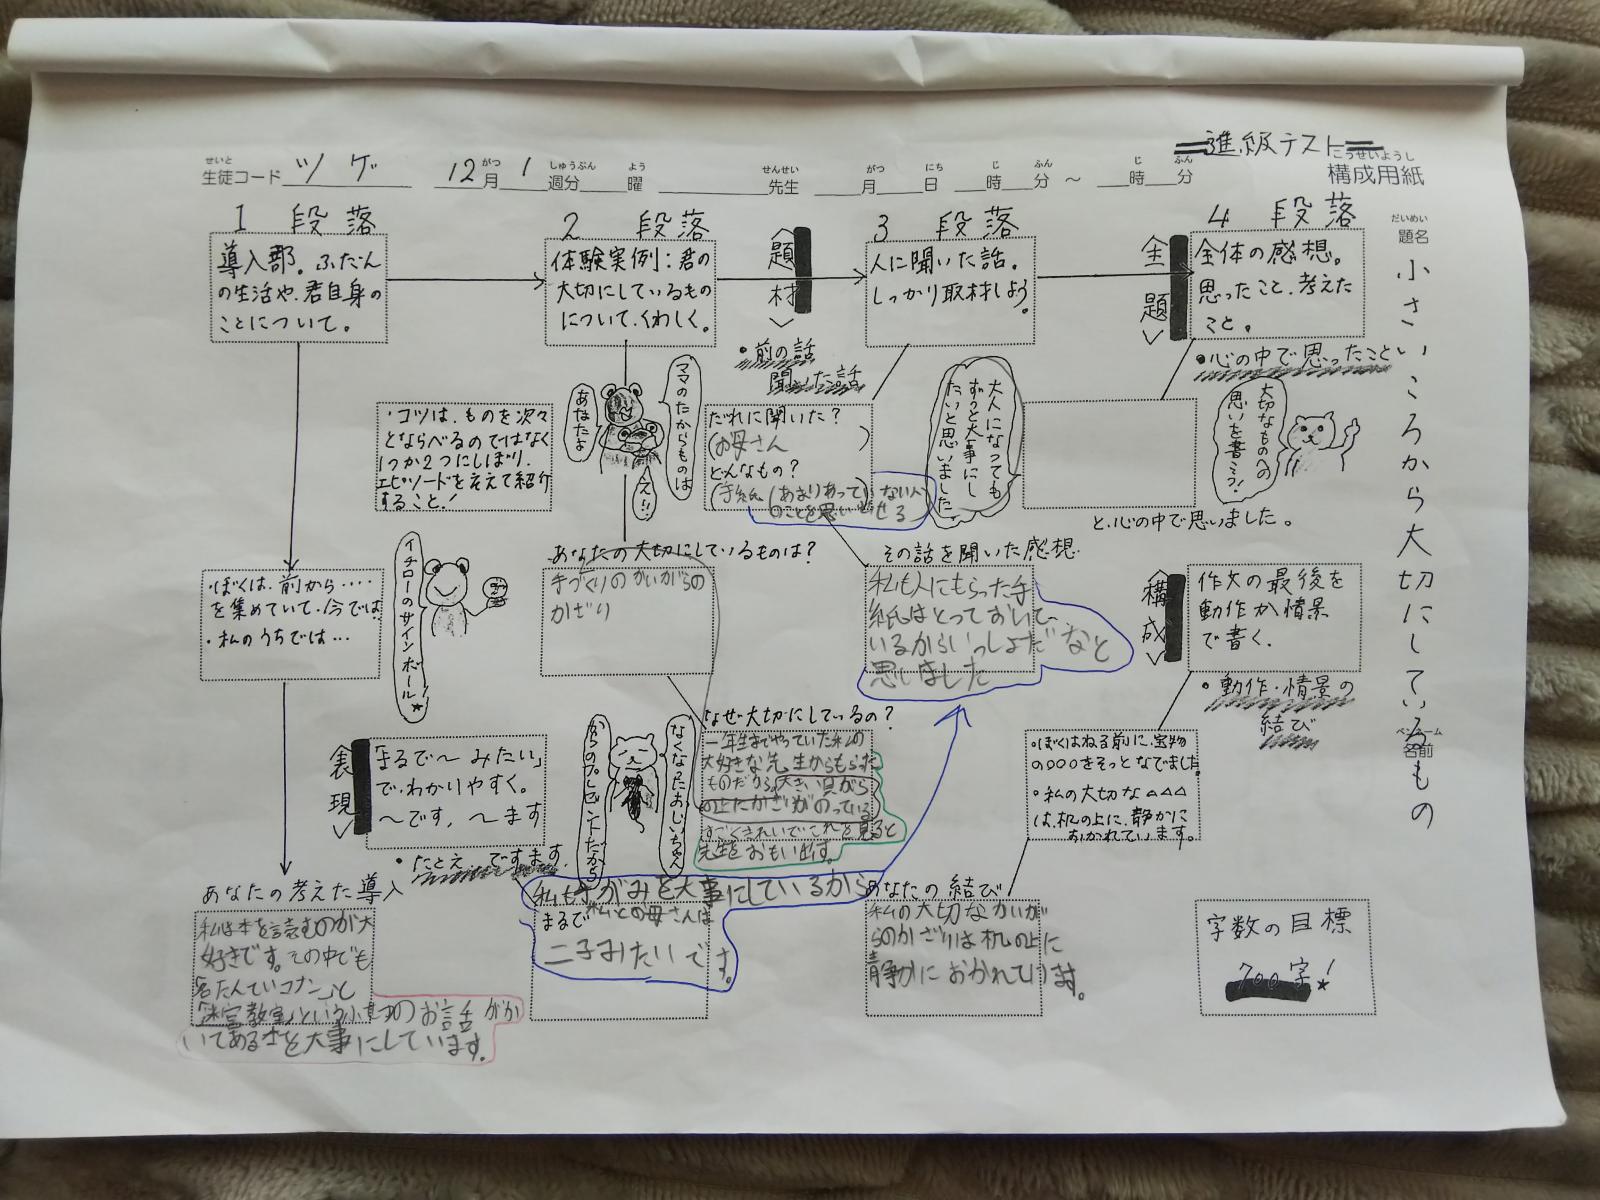 進級テスト
せいと
生徒コード ツゲ 12月 1 週分 曜 先生 月 日 時 分 ～ 時 分
がつ しゅうぶん よう せんせい がつ にち じ ふん じ ふん
こうせいようし
構成用紙
だいめい
題名
小さいころから大切にしているもの
ペンネーム
名前
1 段落
導入部。ふだん
の生活や、君自身の
ことについて。
・ぼくは、前から‥‥
を集めていて、今では
・私のうちでは…
イチローのサインボール★
あなたの考えた導入
私は本を読むのが大
好きです。その中でも
名たんていコナン」と
「迷宮教室」という小
のお話がか
いてある本を大事にしています。
2 段落
体験実例：君の
大切にしているもの
について、くわしく。
・コツは、ものを次々
とならべるのではなく
1つか2つにしぼり、
エピソードを交えて紹介
すること！
ママのたからものは
あなたよ
え!!
あなたの大切にしているものは？
手づくりのかいがらの
かざり
なぜ大切にしているの？
一年生までやっていた私の
大好きな先生からもらった
ものだから。大きい貝がら
の上にかざりがのっている
すごくきれいでこれを見ると
先生をおもい出す。
なくなったおじいちゃん
からのプレゼントだから
〈表現〉
「まるで～みたい」
で、わかりやすく。
～です、～ます
・たとえ、ですます
私も手がみを大事にしているから
まるで私とお母さんは
二子みたいです。
〈題材〉
・前の話
聞いた話
3 段落
人に聞いた話。
しっかり取材しよう。
だれに聞いた？
(お母さん )
どんなもの？
(手紙(あまりあっていない人
のことを思い出せる
その話を聞いた感想
私も人にもらった手
紙はとっておいて、
いるからいっしょだなと
思いました
〈主題〉
4 段落
全体の感想。
思ったこと、考えた
こと。
・心の中で思ったこと
大人になっても
ずっと大事にし
たいと思いました。
大切なものへの
思いを書こう！
と、心の中で思いました。
〈構成〉
作文の最後を
動作か情景
で書く。
・動作・情景の
結び
・ぼくはねる前に、宝物
の○○○をそっとなでました。
・私の大切な△△△
は、机の上に、静かに
おかれています。
あなたの結び
私の大切なかいが
らのかざりは机の上に
静かにおかれています。
字数の目標
700字！★